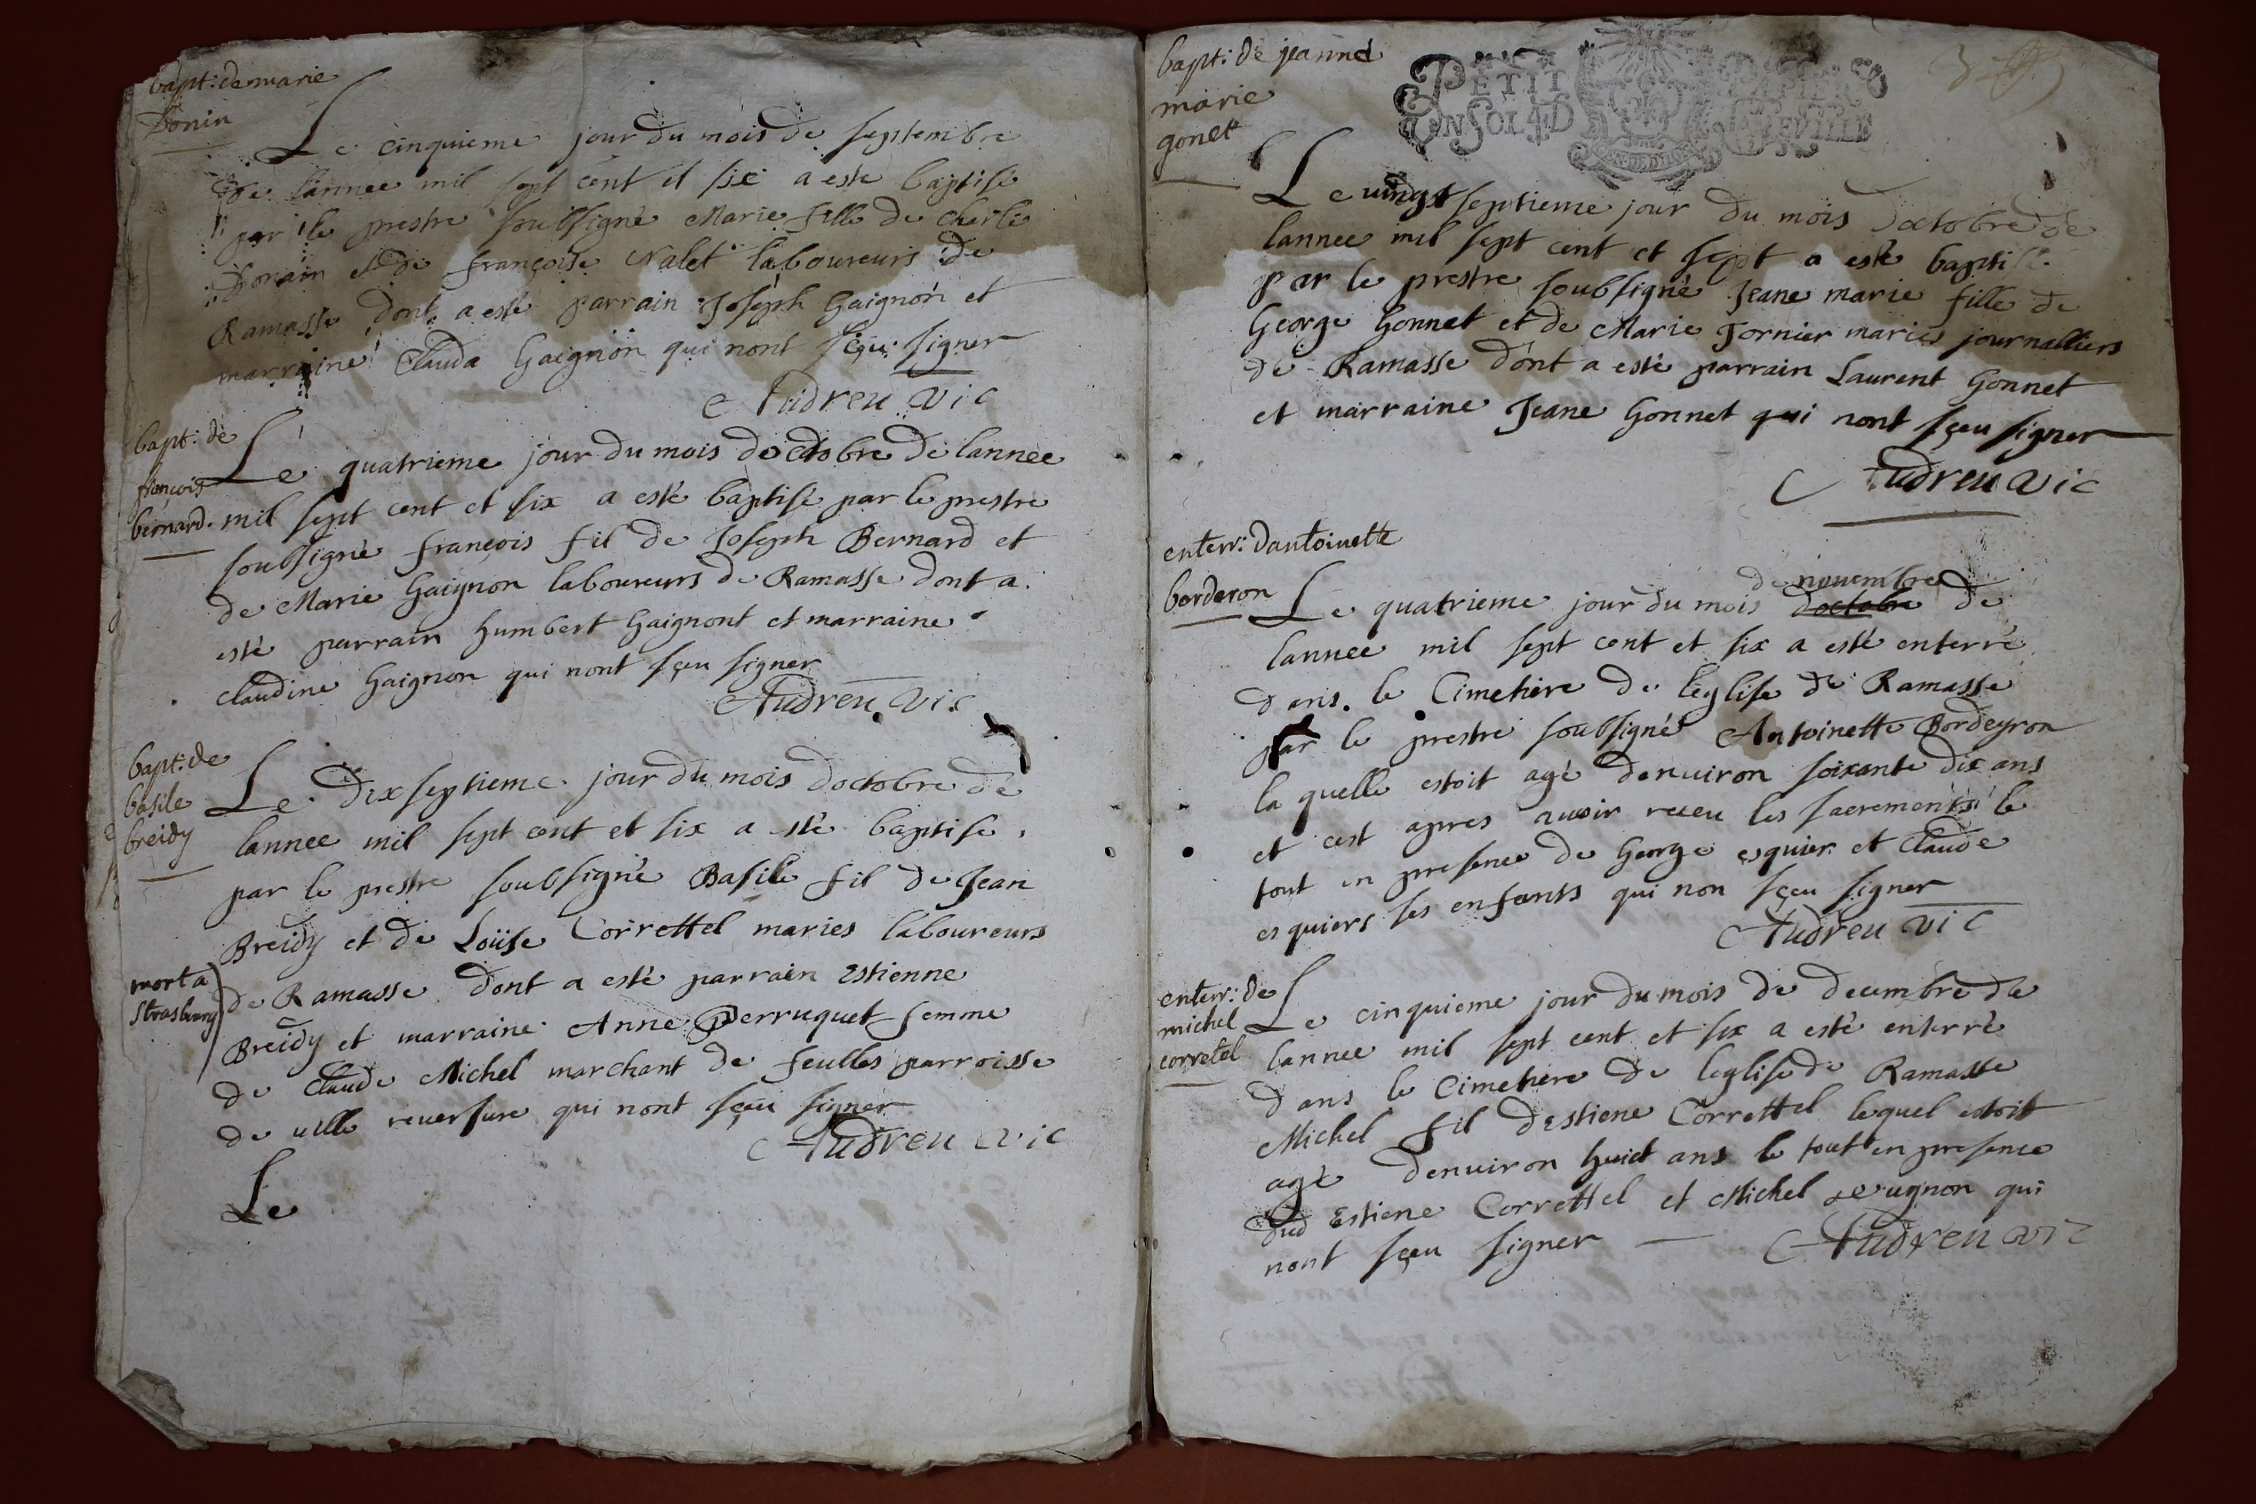 bapt: de marie
Donin
Le cinquieme jour du mois de septembre
de lannee mil sept cent et six a este baptisé
par le prestre soubsigné Marie fille de Cherle
Donain et de françoise Nalet laboureurs de
Ramasse dont a esté parrain Joseph Gaignon et
marraine Clauda Gaignon qui nont sçeu signer
Audreu vic
bapt: de
françois
bernard.
Le quatrieme jour du mois doctobre de lannee
mil sept cent et six a esté baptisé par le prestre
soubsigné françois fil de Joseph Bernard et
de Marie Gaignon laboureurs de Ramasse dont a
esté parrain humbert Gaignont et marraine
Claudine Gaignon qui nont sçeu signer
Audreu vic
bapt: de
basile
breidy
Le dix septieme jour du mois doctobre de
lannee mil sept cent et six a sté baptisé
par le prestre soubsigné Basile fil de Jean
Breidy et de Loüise Correttel maries laboureurs
mort a
Strasbourg
de Ramasse dont a esté parrain Estienne
Breidy et marraine Anne Perruquet femme
de Claude Michel marchant de feulles parroisse
de ville reversure qui nont sçeu signer
Audreu vic
Le
bapt: de jeanne
marie
gonet
PETIT PAPIER
UN SOL 4 D LA FEVILLE
Le vingt septieme jour du mois doctobre de
lannee mil sept cent et sept a esté baptisé
par le prestre soubsigné Jeane marie fille de
George Gonnet et de Marie Fornier maries journalliers
de Ramasse dont a esté parrain Laurent Gonnet
et marraine Jeane Gonnet qui nont sçeu signer
Audreu vic
enterr: dantoinette
borderon
de novembre
Le quatrieme jour du mois doctobre de
lannee mil sept cent et six a esté enterré
dans le Cimetiere de leglise de Ramasse
par le prestre soubsigné Antoinette Bordeyron
la quelle estoit agé denviron soixante dix ans
et cest apres avoir receu les sacrements le
tout en presence de George esquier et Claude
esquiers ses enfants qui non sçeu signer
Audreu vic
enterr: de
michel
corretel
Le cinquieme jour du mois de decembre de
lannee mil sept cent et six a esté enterré
dans le Cimetiere de leglise de Ramasse
Michel fil destiene Correttel lequel estoit
agé denviron huict ans le tout en presence
dud Estiene Correttel et Michel qui
nont sçeu signer
Audreu vic